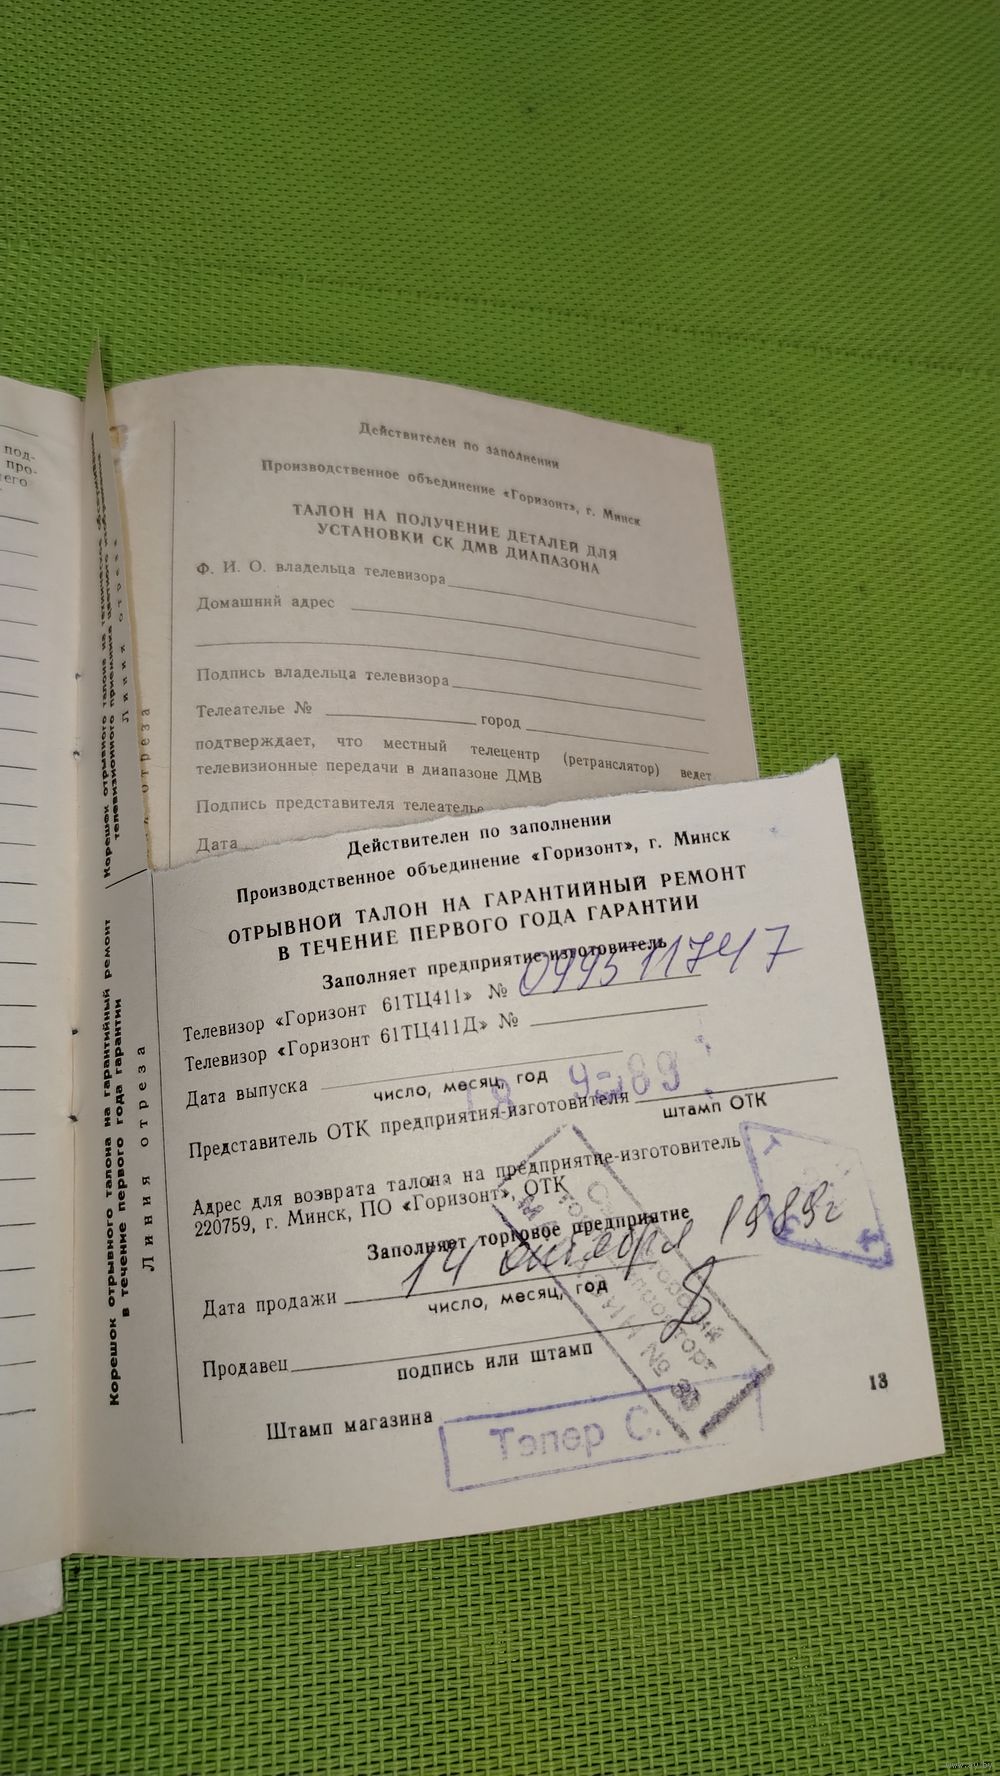 под-
про-
Корешок отрывного талона на техническое обслуживание
телевизионного приемника цветного изображения
Линия отреза
отреза
Действителен по заполнении
Производственное объединение «Горизонт», г. Минск
ТАЛОН НА ПОЛУЧЕНИЕ ДЕТАЛЕЙ ДЛЯ
УСТАНОВКИ СК ДМВ ДИАПАЗОНА
Ф. И. О. владельца телевизора
Домашний адрес
Подпись владельца телевизора
Телеателье № город
подтверждает, что местный телецентр (ретранслятор) ведет
телевизионные передачи в диапазоне ДМВ
Подпись представителя телеателье
Дата
Корешок отрывного талона на гарантийный ремонт
в течение первого года гарантии
Линия отреза
Действителен по заполнении
Производственное объединение «Горизонт», г. Минск
ОТРЫВНОЙ ТАЛОН НА ГАРАНТИЙНЫЙ РЕМОНТ
В ТЕЧЕНИЕ ПЕРВОГО ГОДА ГАРАНТИИ
Заполняет предприятие-изготовитель
Телевизор «Горизонт 61ТЦ411» №
Телевизор «Горизонт 61ТЦ411Д» №
Дата выпуска
число, месяц, год
Представитель ОТК предприятия-изготовителя
штамп ОТК
Адрес для возврата талона на предприятие-изготовитель
220759, г. Минск, ПО «Горизонт», ОТК
Заполняет торговое предприятие
Дата продажи 14 октября 1989г
число, месяц, год
Продавец
подпись или штамп
Штамп магазина
МАГАЗИН №
Тэпер С.
13